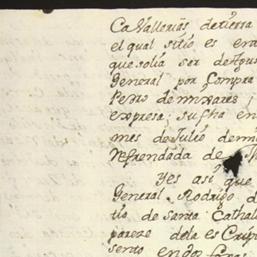 Cavallerias de tierra
el qual sitio es en
que solia ser de Agus
General por Compra
Pedro de mixares
expresa; su fha en
mes de Julio de mi
Refrendada de
Yes asi que
General Rodrigo d
tio de Santa Cathal
parece dela escrip
sento en dos foxas